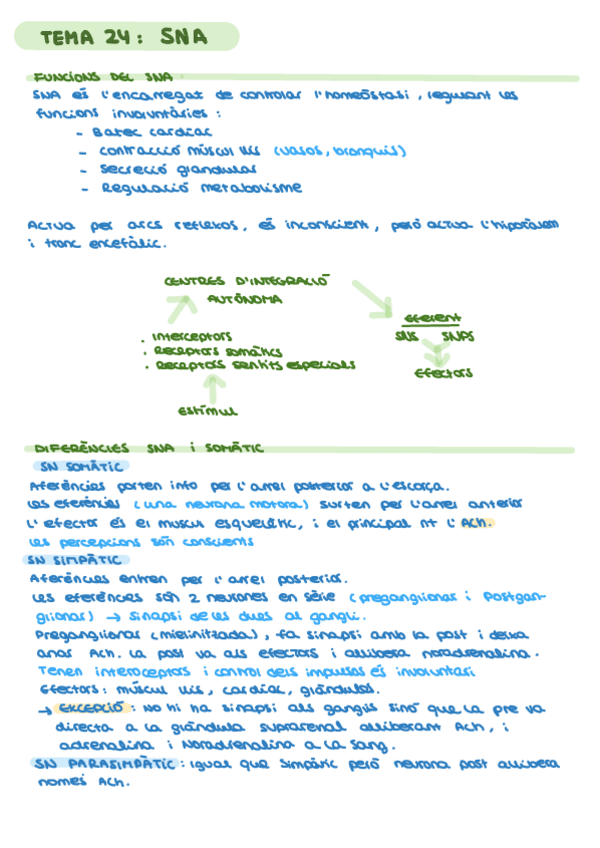 TEMA 24: SNA
FUNCIONS DEL SNA
SNA és l'encarregat de controlar l'homeòstasi, regulant les
funcions involuntàries:
- Batec cardíac
- contracció múscul llis (vasos, bronquis)
- Secreció glandular
- Regulació metabolisme
Actua per arcs reflexos, és inconscient, però actua l'hipotàlem
i tronc encefàlic.
CENTRES D'INTEGRACIÓ
AUTÒNOMA
Eferent
. Interceptors
SNS SNPS
. Receptors somàtics
. Receptors sentits especials
Efectors
Estímul
DIFERÈNCIES SNA i SOMÀTIC
SN SOMÀTIC
Aferències porten info per l'arrel posterior a l'escorça.
Les eferències (una neurona motora) surten per l'arrel anterior
L'efector és el múscul esquelètic, i el principal nt l'Ach.
Les percepcions són conscients
SN SIMPÀTIC
Aferències entren per l'arrel posterior.
Les eferències són 2 neurones en sèrie (preganglionar i Postgan-
glionar) → Sinapsi de les dues al gangli.
Preganglionar (mielinitzada), fa sinapsi amb la post i deixa
anar Ach. La post va als efectors i allibera noradrenalina.
Tenen interoceptors i control dels impulsos és involuntari
Efectors: múscul llis, cardíac, glàndules.
→ Excepció: No hi ha sinapsi als ganglis sinó que la pre va
directa a la glàndula suprarenal alliberant Ach, i
adrenalina i Noradrenalina a la sang.
SN PARASIMPÀTIC: igual que simpàtic però neurona post allibera
només Ach.